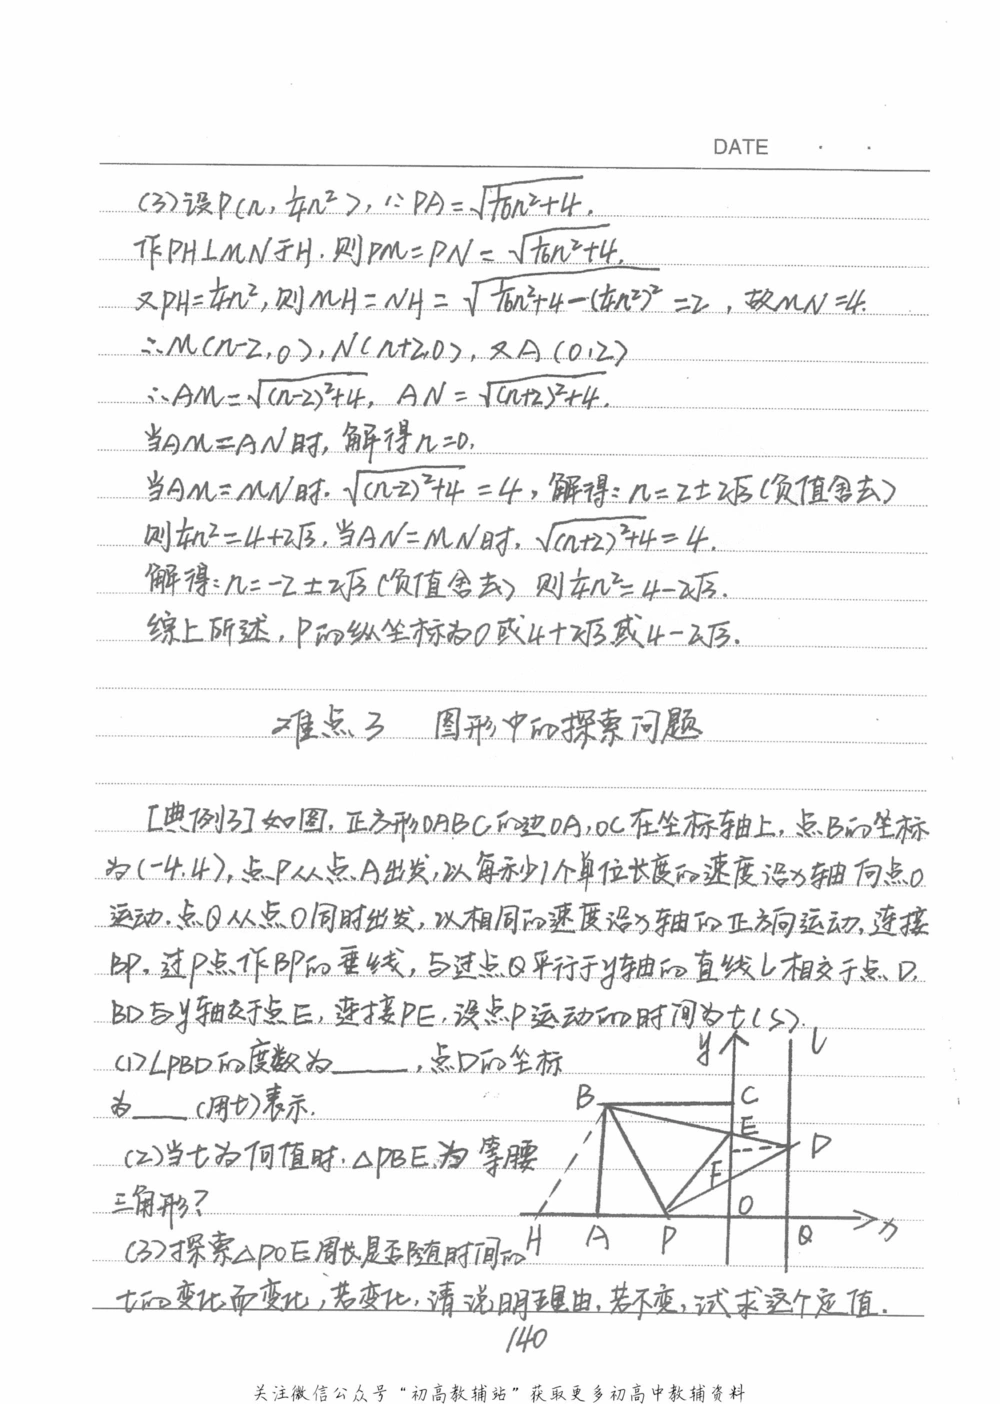 DATE · ·
(3)设P(n, ¼n²), ∵PA=√(1/16n²+4).
作PH⊥MN于H.则PM=PN=√(1/16n²+4).
又PH=¼n²,则MH=NH=√(1/16n²+4-(¼n²)²)=2,故MN=4.
∴M(n-2,0),N(n+2,0),又A(0,2)
∴AM=√((n-2)²+4), AN=√((n+2)²+4).
当AM=AN时,解得n=0.
当AM=MN时.√((n-2)²+4)=4,解得:n=2±2√3(负值舍去)
则¼n²=4+2√3.当AN=MN时.√((n+2)²+4)=4.
解得:n=-2±2√3(负值舍去) 则¼n²=4-2√3.
综上所述,P的纵坐标为0或4+2√3或4-2√3.
难点3 图形中的探索问题
[典例3]如图,正方形OABC的边OA,OC在坐标轴上,点B的坐标
为(-4,4),点P从点A出发,以每秒1个单位长度的速度沿x轴向点O
运动.点Q从点O同时出发,以相同的速度沿x轴的正方向运动,连接
BP,过P点作BP的垂线,与过点Q平行于y轴的直线L相交于点D.
BD与y轴交于点E,连接PE,设点P运动的时间为t(S).
(1)∠PBD的度数为____,点D的坐标
为____(用t)表示.
(2)当t为何值时,△PBE为等腰
三角形?
(3)探索△POE周长是否随时间的
t的变化而变化,若变化,请说明理由,若不变,试求这个定值.
y L
B C
E D
F
O
H A P Q x
140
关注微信公众号“初高教辅站”获取更多初高中教辅资料